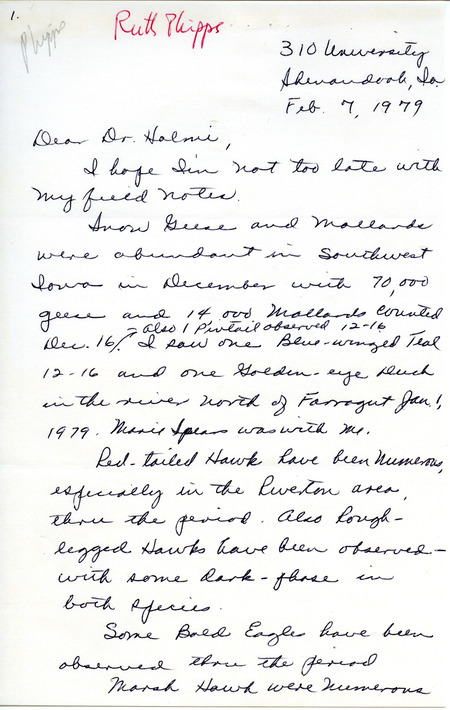 1.
Phipps
Ruth Phipps
310 University
Shenandoah, Ia.
Feb. 7, 1979
Dear Dr. Halmi,
I hope I'm not too late with
my field notes.
Snow Geese and Mallards
were abundant in Southwest
Iowa in December with 70,000
geese and 14 000 Mallards counted
Dec. 16/. Also 1 Pintail observed 12-16
I saw one Blue-winged Teal
12-16 and one Golden-eye Duck
in the river north of Farragut Jan. 1,
1979. Marie Spears was with me.
Red-tailed Hawk have been numerous,
especially in the Riverton area,
thru the period. Also Rough-
legged Hawks have been observed-
with some dark-phase in
both species.
Some Bald Eagles have been
observed thru the period
Marsh Hawk were numerous